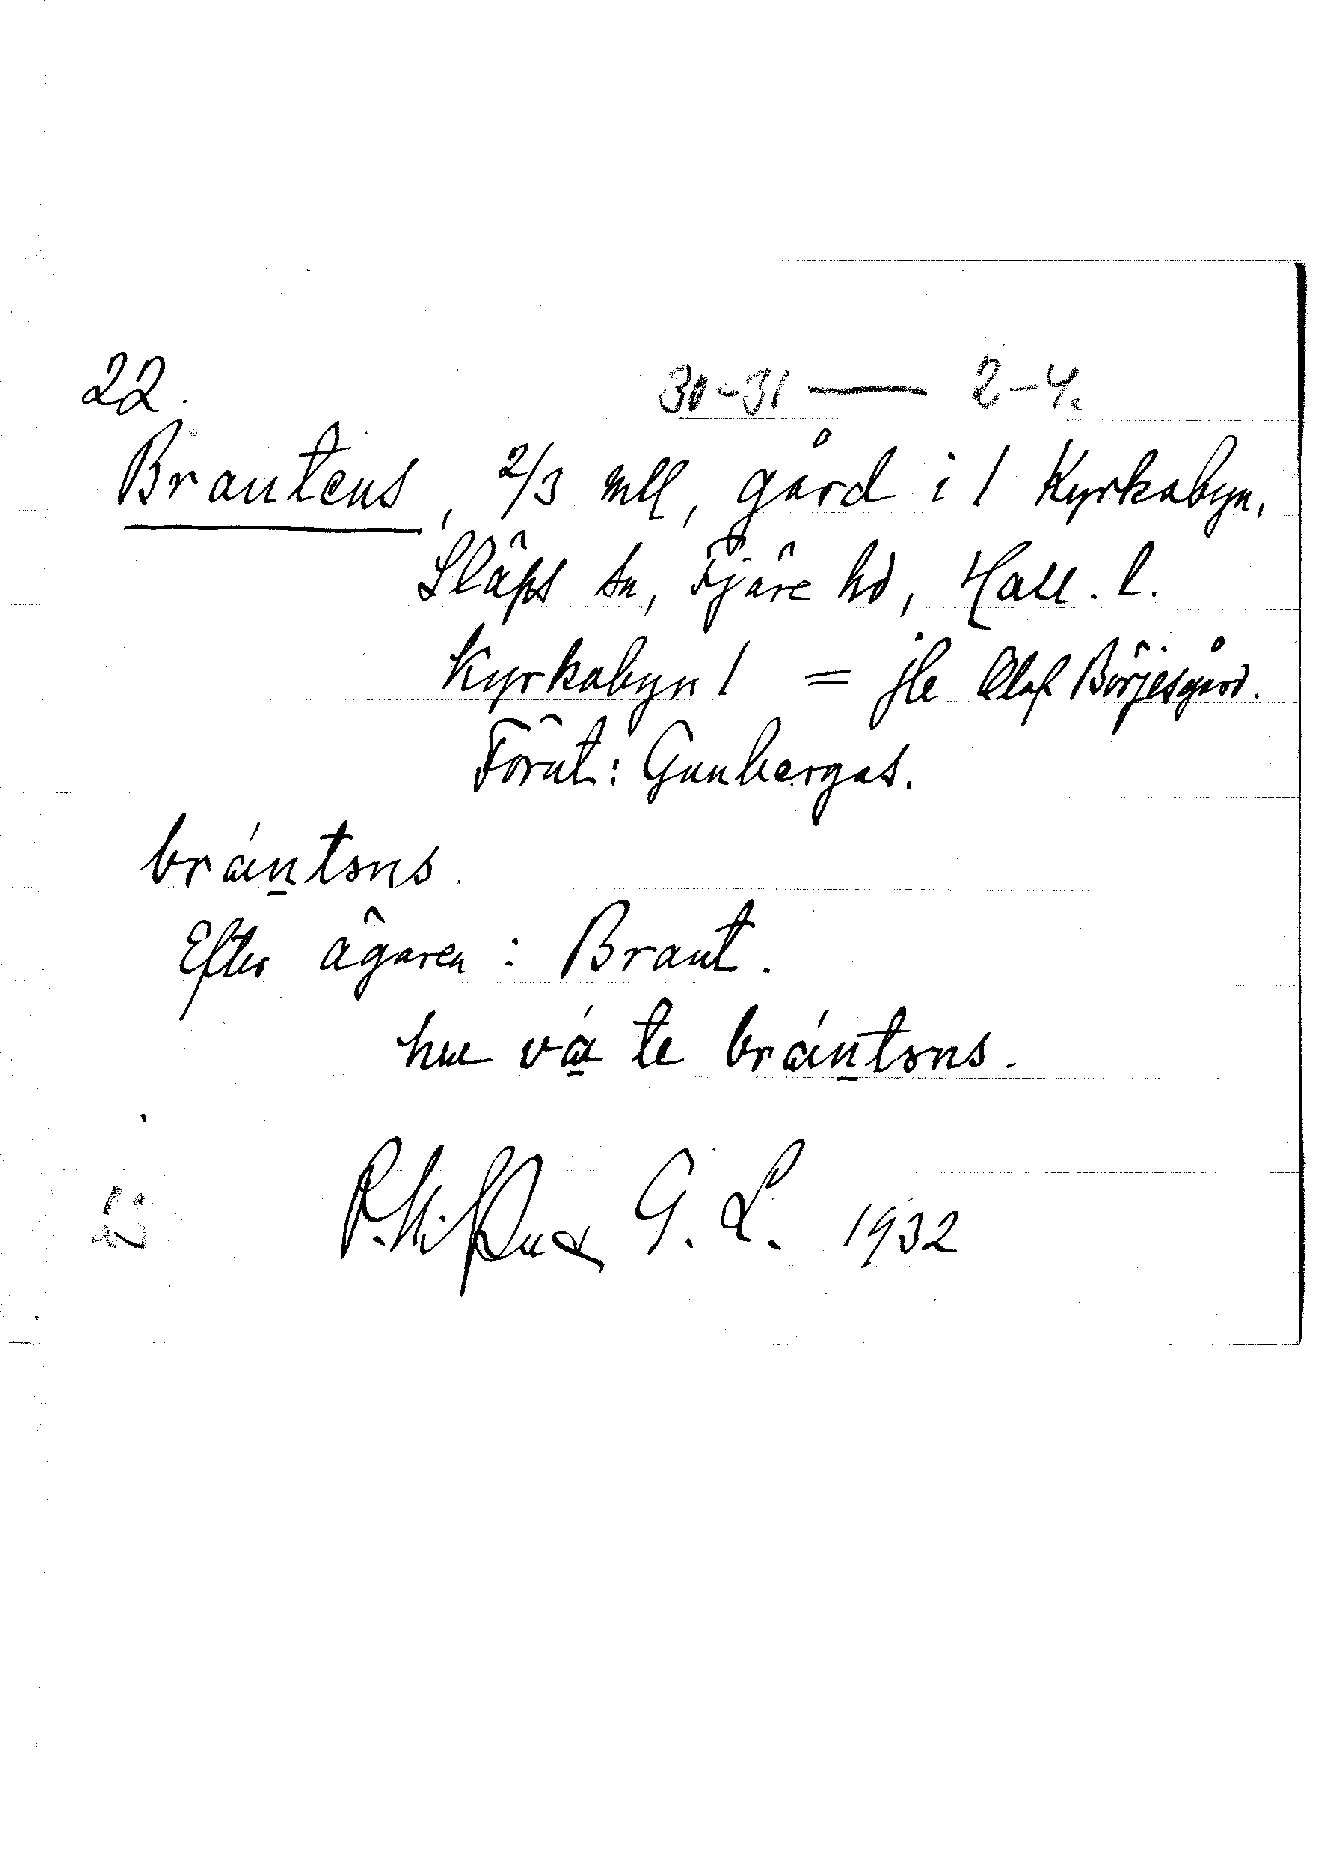 22.
30-31 — 2-4.
Brantens, 2/3 mll, gård i 1 Kyrkabyn,
Släps sn, Fjäre hd, Hall. l.
Kyrkabyn 1 = jle Olof Börjesgård.
Förut: Gunbergas.
brántəns.
Efter ägaren: Brant.
hu vá te brántəns.
G. L. 1932